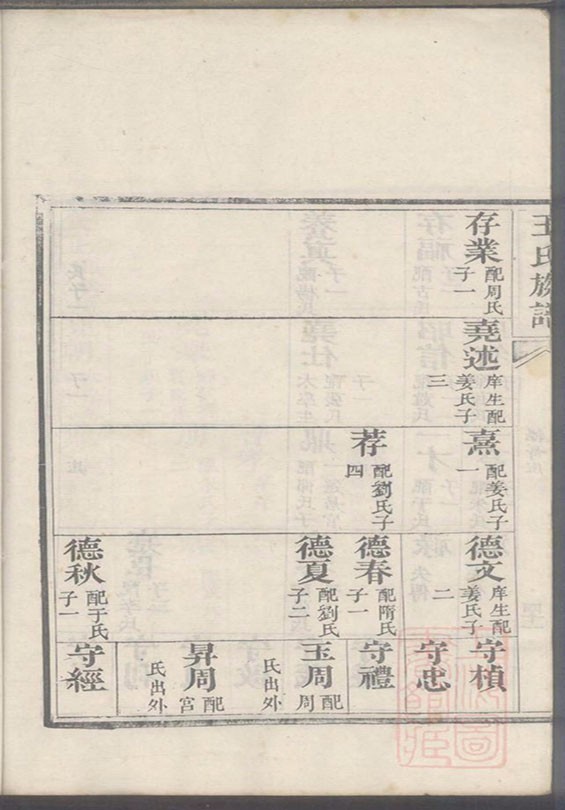 王氏族譜
存業 配周氏子一
堯述 庠生配姜氏子三
熹 配姜氏子一
荐 配劉氏子四
德文 庠生配姜氏子二
德春 配隋氏子一
德夏 配劉氏子二
德秋 配于氏子一
守楨
守忠
守禮
玉周 配周氏出外
昇周 配宮氏出外
守經